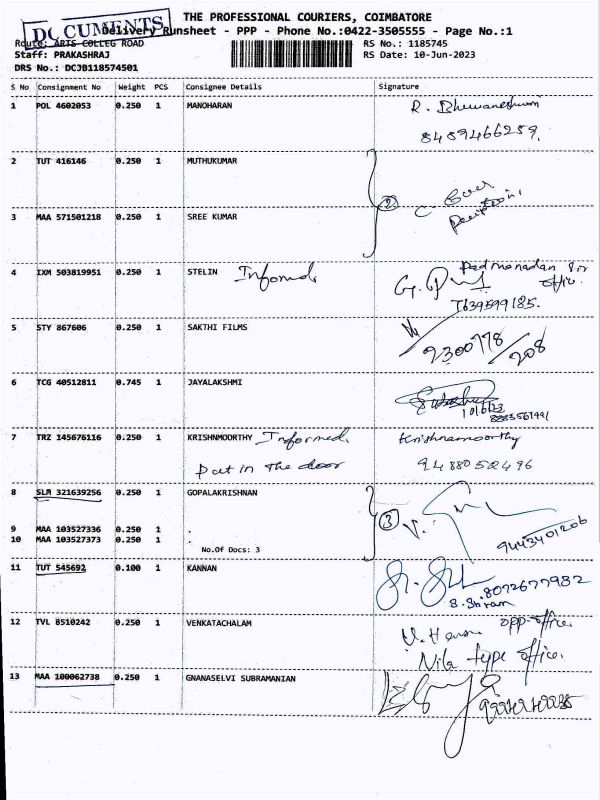 THE PROFESSIONAL COURIERS, COIMBATORE
DOCUMENTS
Delivery Runsheet - PPP - Phone No.:0422-3505555 - Page No.:1
Route: ARTS COLLEG ROAD RS No.: 1185745
Staff: PRAKASHRAJ RS Date: 10-Jun-2023
DRS No.: DCJB118574501
S No Consignment No Weight PCS Consignee Details Signature
1 POL 4602053 0.250 1 MANOHARAN R. Bhuvaneshwari
8489466259.
2 TUT 416146 0.250 1 MUTHUKUMAR
2
3 MAA 571501218 0.250 1 SREE KUMAR
4 IXM 503819951 0.250 1 STELIN Informed. Padmanadan Sir
office.
7639599185.
5 STY 867606 0.250 1 SAKTHI FILMS
2300778/208
6 TCG 40512811 0.745 1 JAYALAKSHMI
10/6/23
7 TRZ 145676116 0.250 1 KRISHNMOORTHY Informed. Krishnamoorthy
Put in the door 9488052496
8 SLM 321639256 0.250 1 GOPALAKRISHNAN
3
9 MAA 103527336 0.250 1 .
10 MAA 103527373 0.250 1 . 9443401206
No.Of Docs: 3
11 TUT 545692 0.100 1 KANNAN
8072677982
S. Shriram
12 TVL 8510242 0.250 1 VENKATACHALAM opp.office.
Nila type office.
13 MAA 100062738 0.250 1 GNANASELVI SUBRAMANIAN